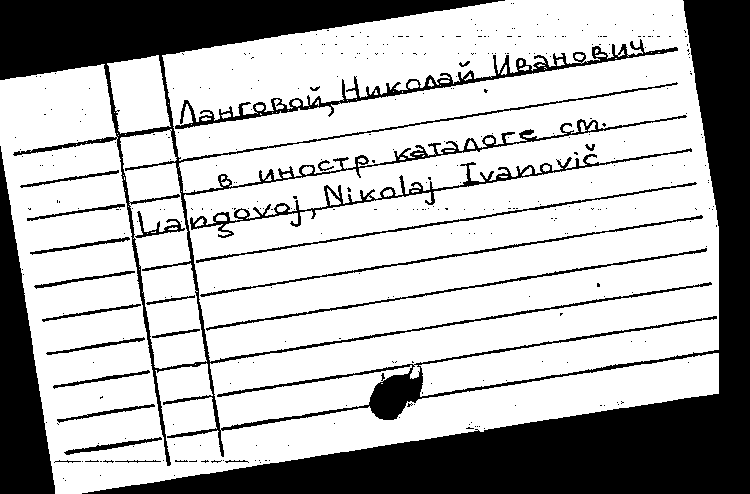 Ланговой, Николай Иванович
в иностр. каталоге см.
Langovoj, Nikolaj Ivanovič